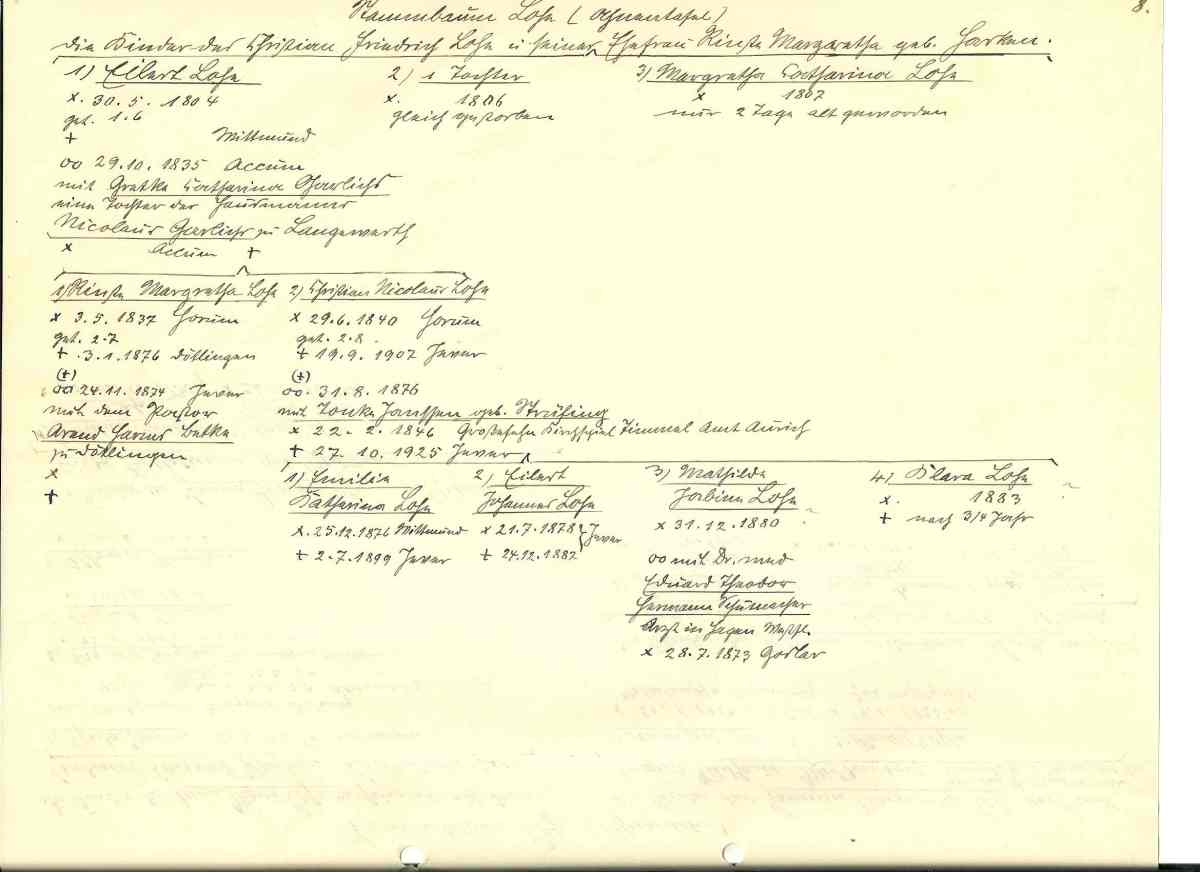 8.
Stammbaum Lohe (Ahnentafel)
Die Kinder des Christian Friedrich Lohe u seiner Ehefrau Rinste Margaretha geb. Harken.
1) Eilert Lohe
x. 30.5.1804
get. 1.6
+ Wittmund
oo 29.10.1835 Accum
mit Gretke Catharina Garlichs
eine Tochter des Hausmanns
Nicolaus Garlichs zu Langewerth
x Accum +
2) 1 Tochter
x. 1806
gleich gestorben
3) Margretha Catharina Lohe
x 1807
nur 2 Tage alt geworden
1) Rinste Margretha Lohe
x 3.5.1837 Horum
get. 2.7
+ .3.1.1876 Dötlingen
(+)
oo 24.11.1874 Jever
mit dem Pastor
Arend Harms Betke
zu Dötlingen
x
+
2) Christian Nicolaus Lohe
x 29.6.1840 Horum
get. 2.8.
+ 19.9.1907 Jever
(+)
oo. 31.8.1876
mit Tonke Janssen geb. Strüfing
x 22. 2. 1846 Großefehn Kirchspiel Timmel Amt Aurich
+ 27. 10. 1925 Jever
1) Emilie
Katharina Lohe
x. 25.12.1876 Wittmund
+ 2.7.1899 Jever
2) Eilert
Johannes Lohe
x 21.7.1878 } Jever
+ 24.12.1882
3) Mathilde
Sabine Lohe
x 31.12.1880
oo mit Dr. med
Eduard Theodor
Hermann Schumacher
Arzt in Hagen Westf.
x 28.7.1873 Goslar
4) Klara Lohe
x. 1883
+ nach 3/4 Jahr